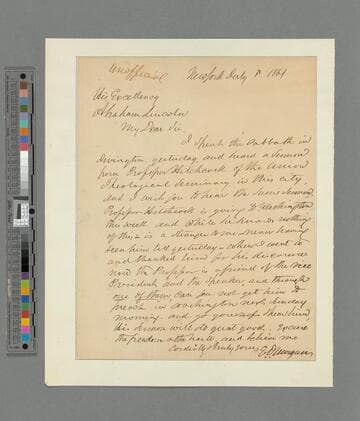 Unofficial
New York July 8. 1864
His Excellency
Abraham Lincoln
My Dear Sir,
I spent the Sabbath in
Irvington yesterday, and heard a Sermon
from Professor Hitchcock of the Union
Theological Seminary in this city,
and I wish you to hear the same Sermon
Professor Hitchcock is going to Washington
this week, and altho he knows nothing
of this is a stranger to me, never having
seen him till yesterday - when I went to
and thanked him for his discourse
now the Professor is a friend of the Vice
President and the Speaker and through
one of them can you not get him to
preach in Washington next Sunday
morning and go yourself & hear him
His sermon will do great good. Excuse
the freedom & the haste and believe me
Cordially & truly yours
E D Morgan